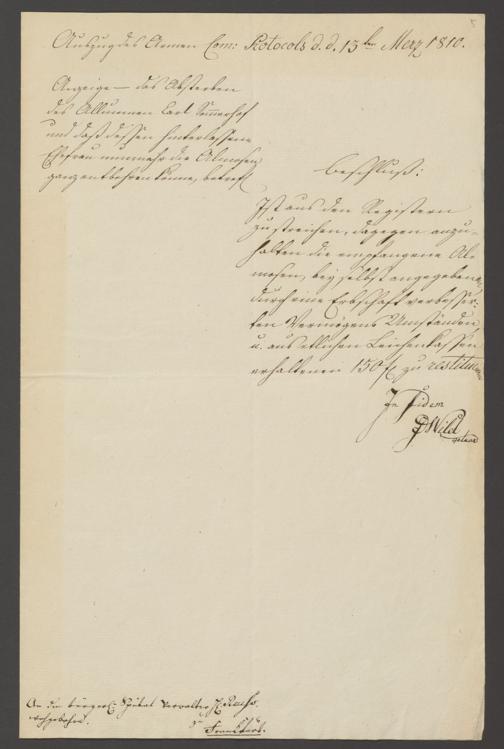 Auszug des Armen Com: Protocols d. d. 13ten Merz 1810.
Anzeige – das Absterben
des Allumnen Carl
und daß dessen hinterlassene
Ehefrau nunmehr die Almosen
ganz entbehren könne, betref
Beschluß:
Ist aus den Registern
zu streichen, dagegen anzu-
halten die empfangene Al-
mosen, bey selbst angegebenen
durch eine Erbschaft verbesser-
ten Vermögens Umständen,
u. aus etlichen Leichenkassen
erhaltenen 150 f. zu restituiren
In fidem
Wild
An den bürgerl. Spital Verwalter H.
wohlgebohrn.
zu
Frankfurt.
5